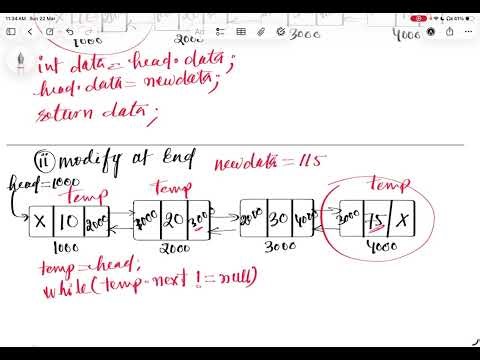 11:34 AM Sun 22 Mar
61%
1000 2000 3000 4000
int data = head.data;
head.data = newdata;
return data;
(ii) modify at End newdata = 115
head=1000
temp temp temp
X 10 2000 1000 20 3000 2000 30 4000 3000 15 X
1000 2000 3000 4000
temp = head;
while(temp.next != null)